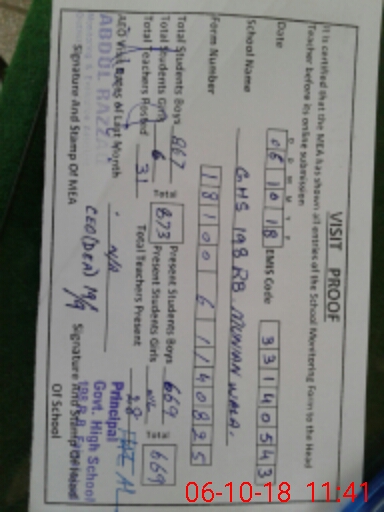 VISIT PROOF
It is certified that the MEA has shown all entries of the School Monitoring Form to the Head
Teacher before its online submission
D D M M Y Y
Date 06 10 18 EMIS Code 33140543
School Name GHS 198 RB. MUNAN WALA.
Form Number 18100 6 1140825
Total Students Boys 867 Present Students Boys 669
Total Students Girls 6 Total 873 Present Students Girls Total 669
Total Teachers Posted 31 Total Teachers Present 28
AEO Visit Dates of Last Month N/A
ABDUL
CEO(DEA) 19/9
Signature And Stamp Of MEA
Principal
Govt. High School
Signature And Stamp Of Head
Of School
06-10-18 11:41